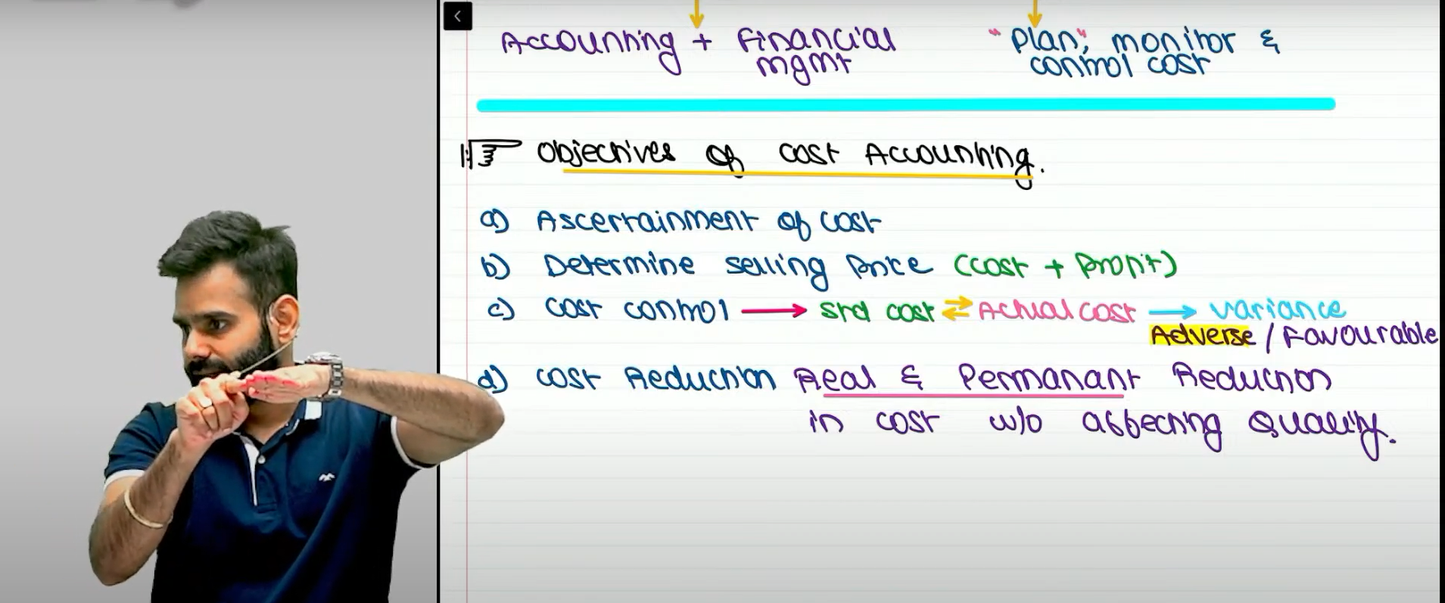 Accounting + Financial mgmt
"Plan", monitor & control cost
Objectives of Cost Accounting.
a) Ascertainment of cost
b) Determine selling price (cost + Profit)
c) Cost control → std cost ⇄ Actual cost → Variance
Adverse / Favourable
d) Cost Reduction Real & Permanant Reduction
in cost w/o affecting Quality.